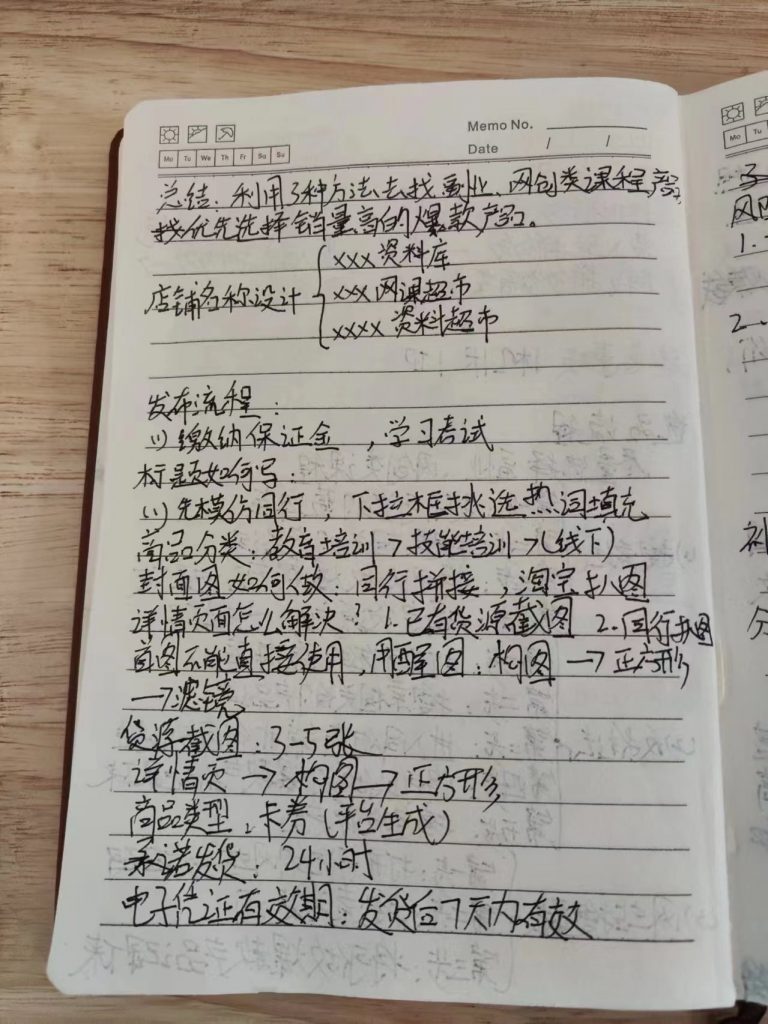 Memo No.
Date / /
Mo Tu We Th Fr Sa Su
总结：利用3种方法去找副业、网创类课程产品
找优先选择销量高的爆款产品。
店铺名称设计
xxx资料库
xxx网课超市
xxxx资料超市
发布流程：
(1)缴纳保证金，学习考试
标题如何写：
(1)先模仿同行，下拉框挑选热词填充
商品分类：教育培训>技能培训>(线下)
封面图如何做：同行拼接，淘宝扒图
详情页面怎么解决？1.已有货源截图 2.同行扒图
首图不能直接使用，用醒图：构图→正方形
→滤镜
货源截图：3-5张
详情页→构图→正方形
商品类型：卡券(平台生成)
承诺发货：24小时
电子凭证有效期：发货后7天内有效
Mo Tu
1.
2.
补
分